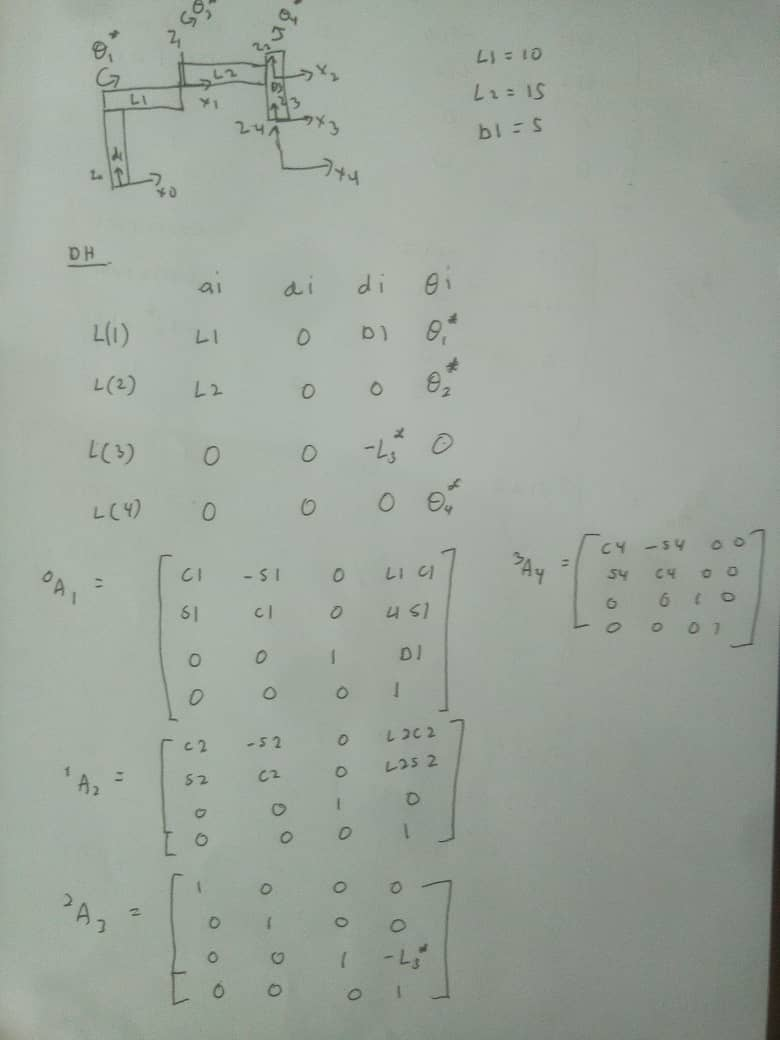 θ₁* θ₂* θ₄*
Z1 L2 X2
L1 X1 D3 Z3
Z4 X3
X4
d1
Z0 X0
L1 = 10
L2 = 15
D1 = 5
DH
ai αi di θi
L(1) L1 0 D1 θ₁*
L(2) L2 0 0 θ₂*
L(3) 0 0 -L₃* 0
L(4) 0 0 0 θ₄*
⁰A₁ =
C1 -S1 0 L1 C1
S1 C1 0 L1 S1
0 0 1 D1
0 0 0 1
³A₄ =
C4 -S4 0 0
S4 C4 0 0
0 0 1 0
0 0 0 1
¹A₂ =
C2 -S2 0 L2C2
S2 C2 0 L2S2
0 0 1 0
0 0 0 1
²A₃ =
1 0 0 0
0 1 0 0
0 0 1 -L₃*
0 0 0 1